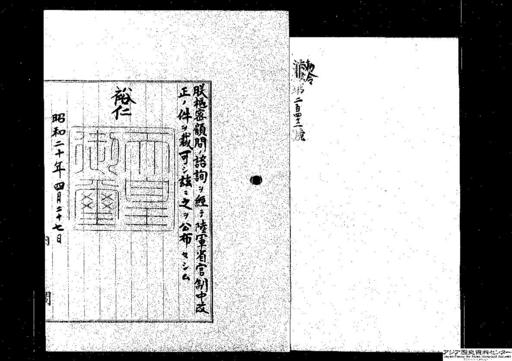 勅令
第二百四十二號
朕樞密顧問ノ諮詢ヲ經テ陸軍省官制中改
正ノ件ヲ裁可シ茲ニ之ヲ公布セシム
裕仁
天皇御璽
昭和二十年四月二十七日
内閣
アジア歴史資料センター
Japan Center for Asian Historical Records